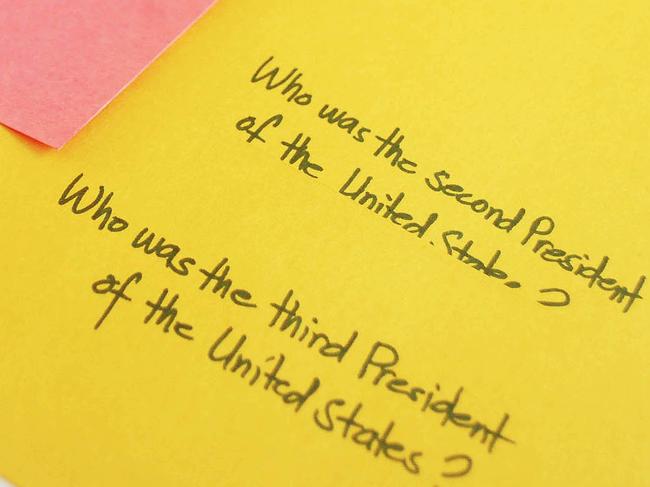 Who was the second President
of the United States?
Who was the third President
of the United States?